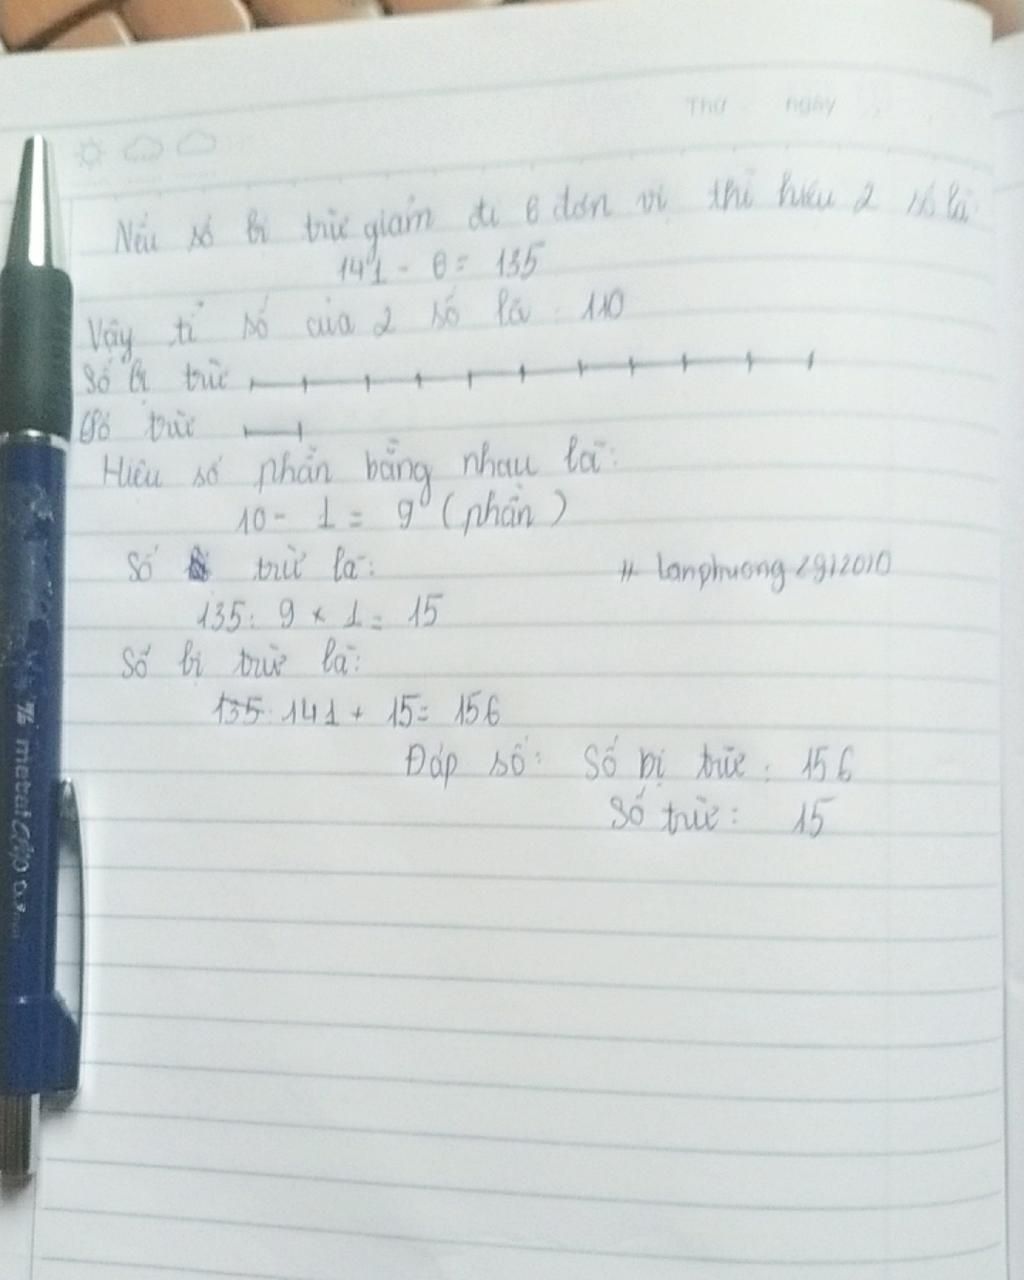 Thứ ngày
Nếu số bị trừ giảm đi 6 đơn vị thì hiệu 2 số là
141 - 6 = 135
Vậy tỉ số của 2 số là : 1/10
Số bị trừ
Số trừ
Hiệu số phần bằng nhau là:
10 - 1 = 9 (phần)
Số trừ là:
# lanphuong2912010
135 : 9 x 1 = 15
Số bị trừ là:
141 + 15 = 156
Đáp số: Số bị trừ : 156
Số trừ : 15
metal